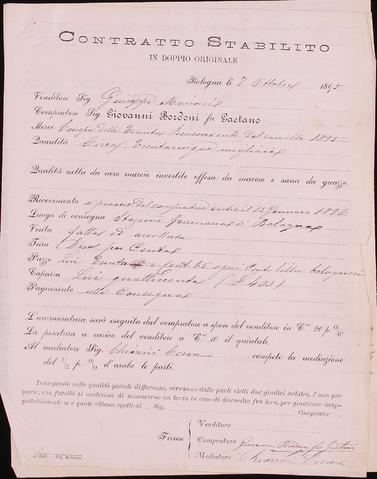 CONTRATTO STABILITO
IN DOPPIO ORIGINALE
Bologna li 7 Ottobre 1895
Venditore Sig. Giuseppe
Compratore Sig. Giovanni Bordoni fu Gaetano
Merce Canapa della Tenuta del raccolto 1895
Quantità Circa
Qualità netta da nero marcio investito offesa da macero e sana da guazze.
Ricevimento a piacere del compratore entro il 15 Gennaro 1896
Luogo di consegna Stazione Bologna
Visita fatta ed accettata
Tara Due per Cento
Prezzo Lire Trenta e Cent. 65 ogni Cento libbre bolognesi
Caparra Lire quattrocento (L. 400)
Pagamento alla Consegna
L'armaratura sarà eseguita dal compratore a spese del venditore in C.mi 20 p. %
La pesatura a carico del venditore a C.mi 10 il quintale.
Al mediatore Sig. compete la mediazione
del ½ p. % d'ambo le parti.
Insorgendo sulle qualità piccole differenze, verranno dalle parti eletti due giudici arbitri, l'uno per
parte, con facoltà ai medesimi di nominarne un terzo in caso di discordia fra loro, per giudicare inap-
pellabilmente se e quale abbuono spetti al Sig. Compratore
Firme
Venditore
Compratore Giovanni Bordoni fu Gaetano
Mediatore